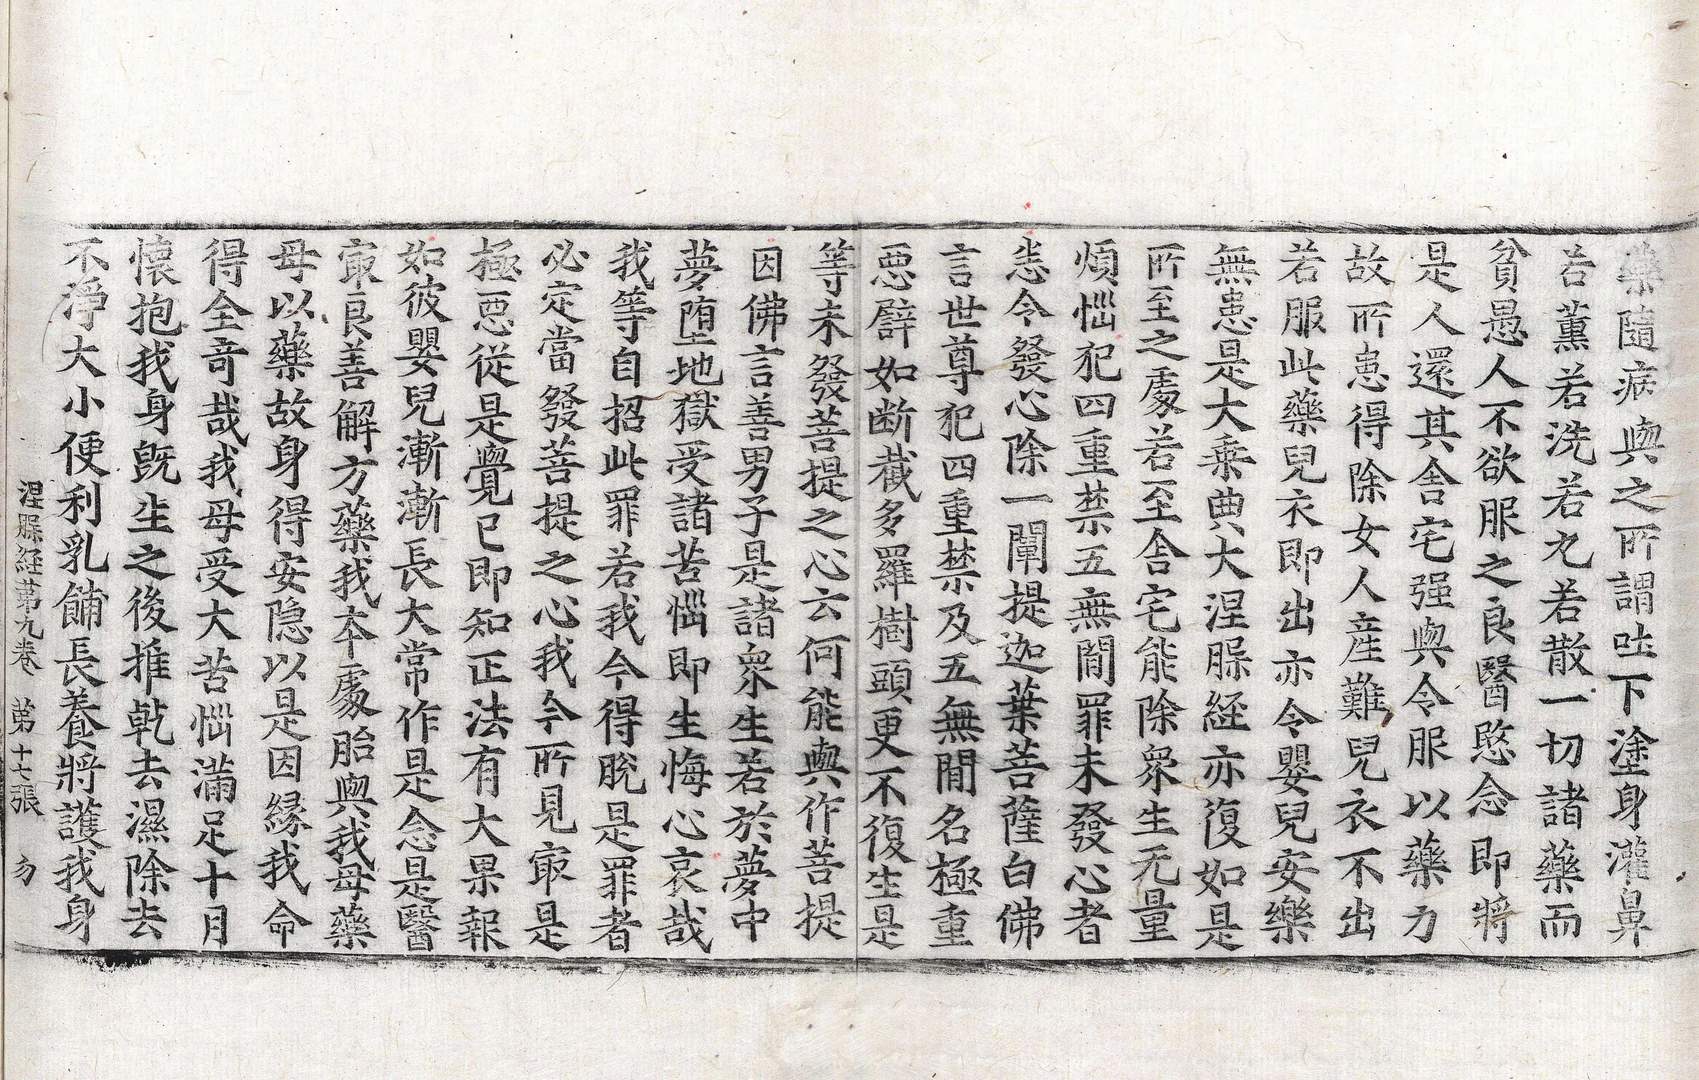 藥隨病與之所謂吐下塗身灌鼻
若薰若洗若丸若散一切諸藥而
貧愚人不欲服之良醫愍念即將
是人還其舍宅强與令服以藥力
故所患得除女人產難兒衣不出
若服此藥兒衣即出亦令嬰兒安樂
無患是大乘典大涅槃經亦復如是
所至之處若至舍宅能除衆生无量
煩惱犯四重禁五無閒罪未發心者
悉令發心除一闡提迦葉菩薩白佛
言世尊犯四重禁及五無閒名極重
惡譬如断截多羅樹頭更不復生是
等未發菩提之心云何能與作菩提
因佛言善男子是諸衆生若於夢中
夢墮地獄受諸苦惱即生悔心哀哉
我等自招此罪若我今得脫是罪者
必定當發菩提之心我今所見㝡是
極惡從是覺已即知正法有大果報
如彼嬰兒漸漸長大常作是念是醫
㝡良善解方藥我本處胎與我母藥
母以藥故身得安隐以是因緣我命
得全奇哉我母受大苦惱滿足十月
懷抱我身既生之後推乾去濕除去
不淨大小便利乳餔長養將護我身
涅槃経苐九卷　苐十七張　勿